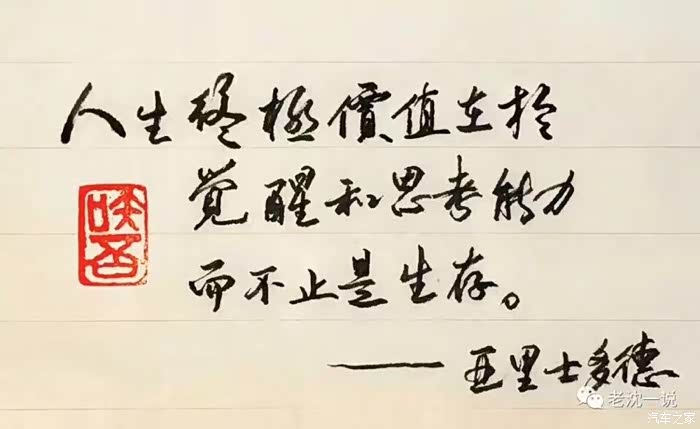 人生终極價值在於
觉醒和思考能力
而不止是生存。
——亚里士多德
老沈一说
汽车之家